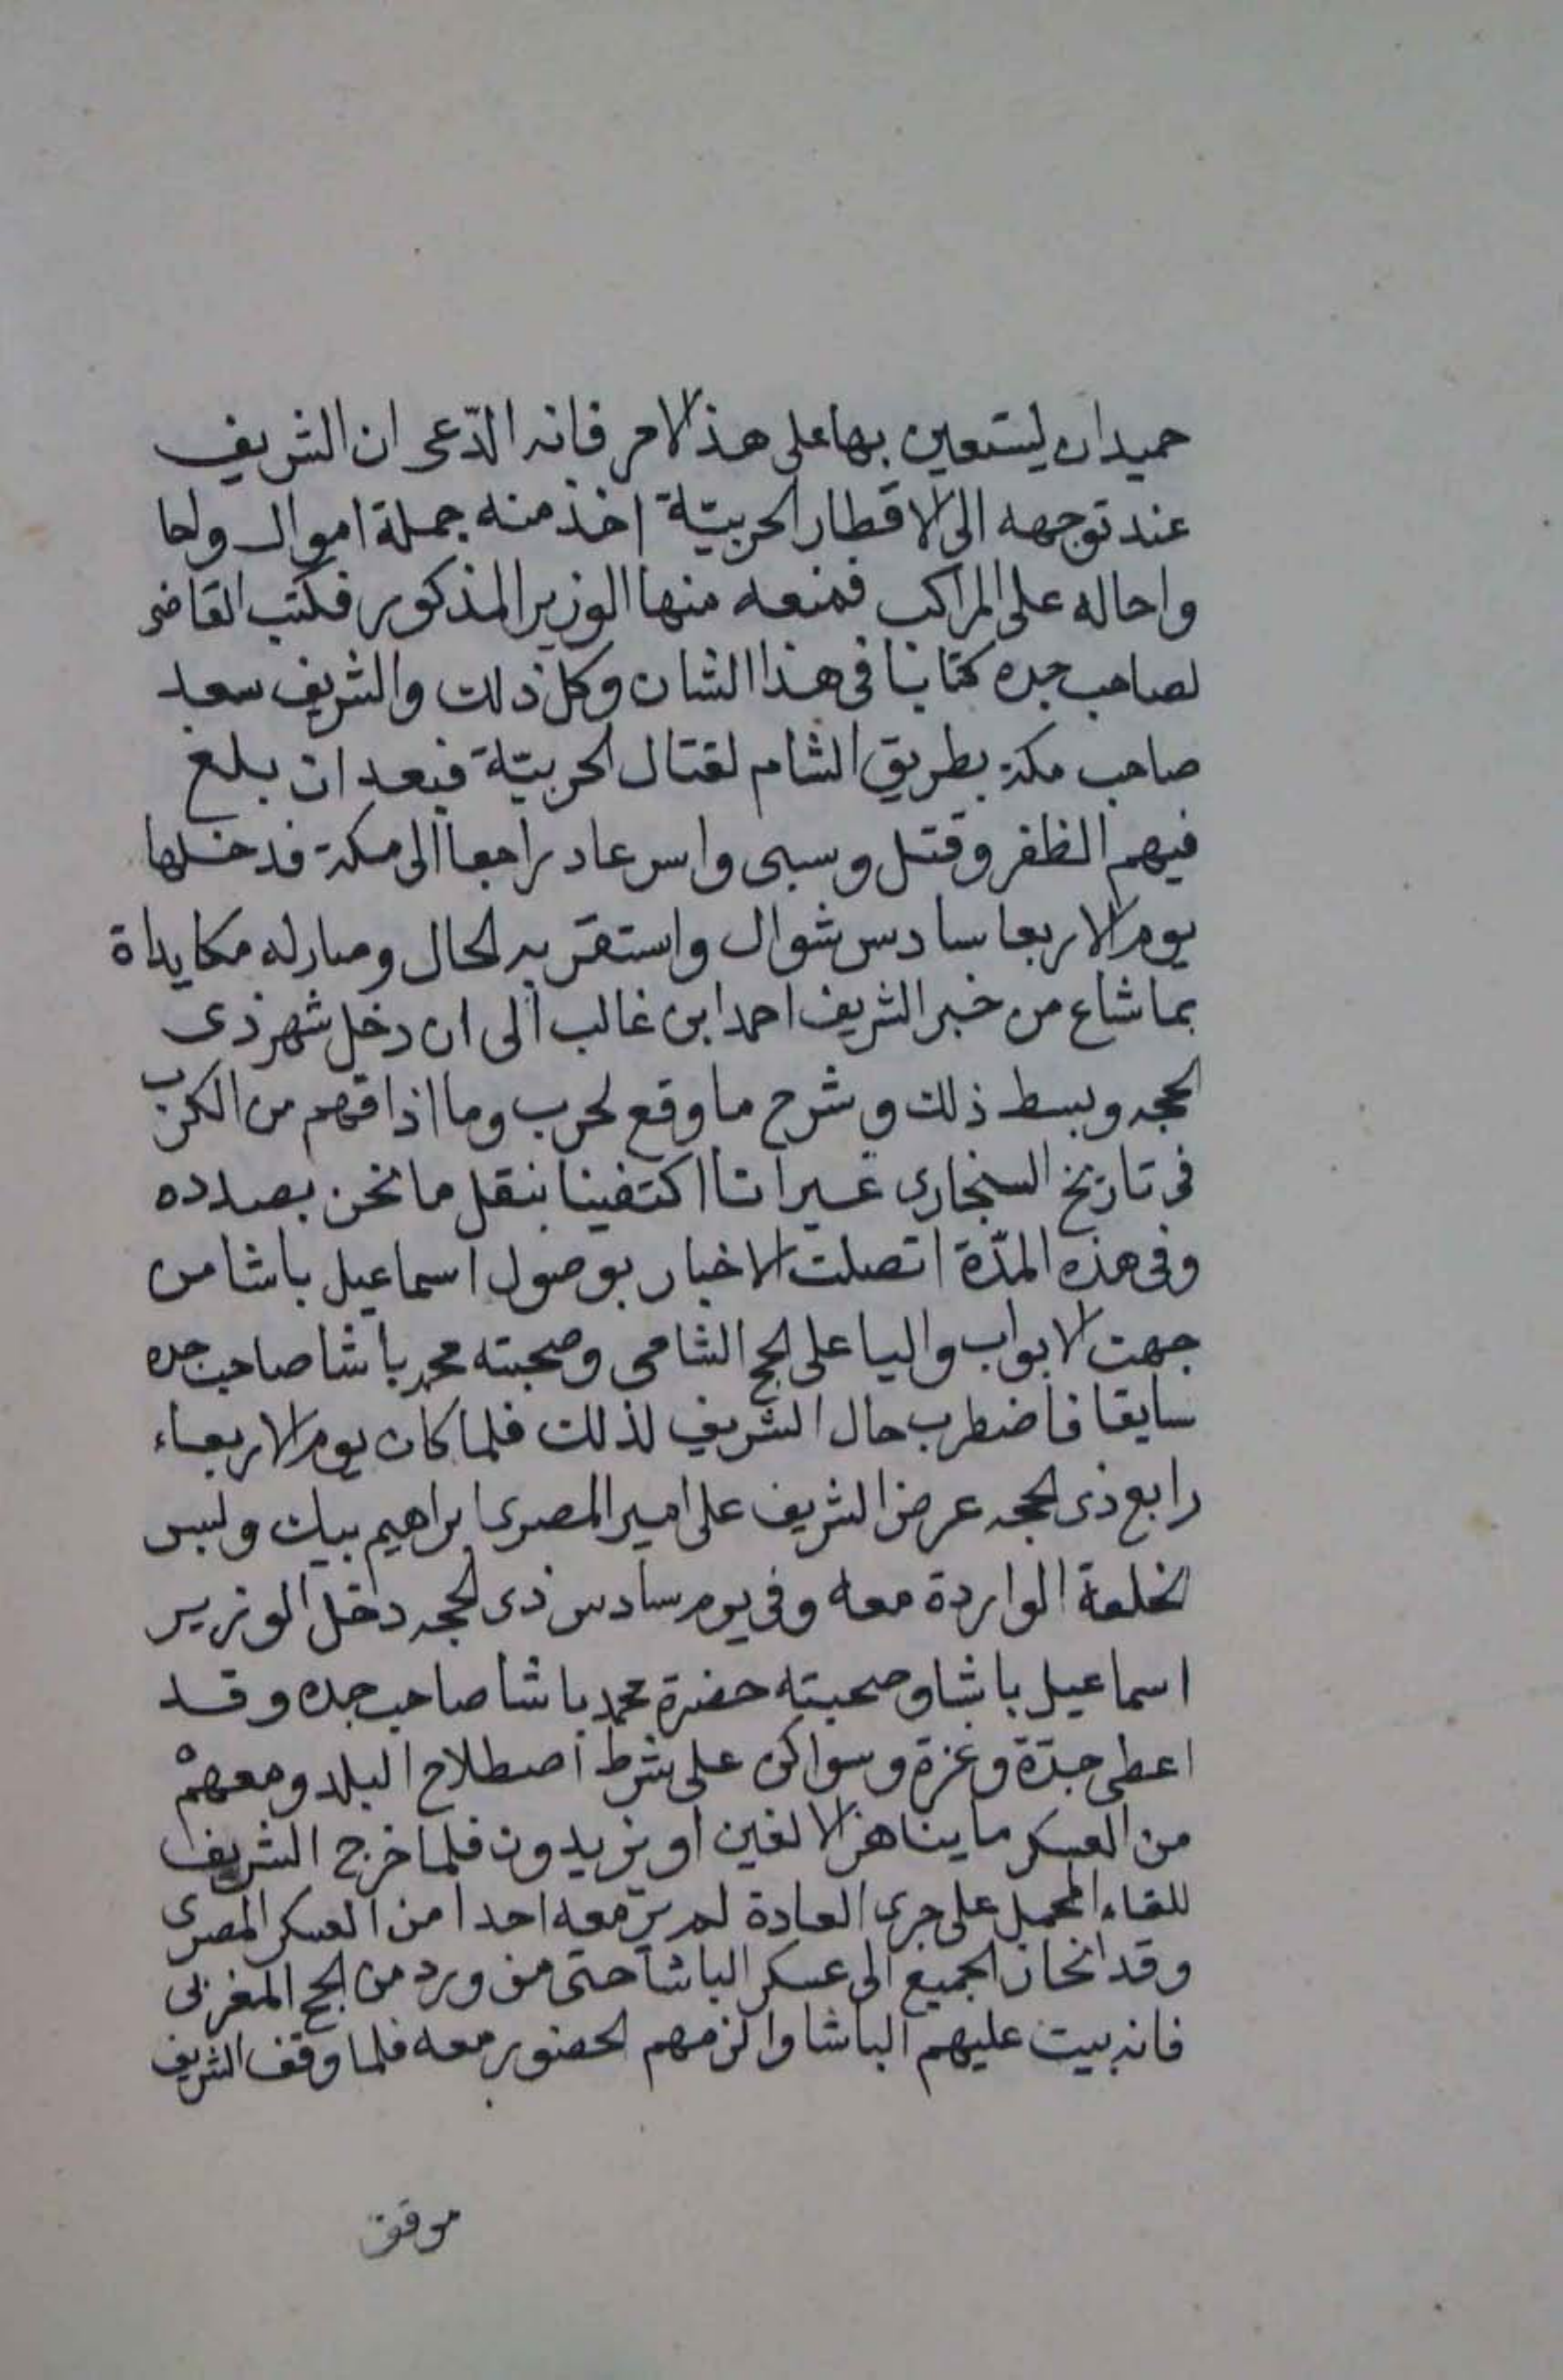 حميدان ليستعين بها على هذا الامر فانه الدّعى ان الشريف
عند توجهه الى الاقطار الحربيّة اخذ منه جملة اموال واحا
واحاله على المراكب فمنعه منها الوزير المذكور فكتب القاضى
لصاحب جده كتابا فى هذا الشان وكل ذلك والشريف سعد
صاحب مكة بطريق الشام لقتال الحربيّة فبعد ان بلغ
فيهم الظفر وقتل وسبى واسر عاد راجعا الى مكة فدخلها
يوم الاربعا سادس شوال واستقر به الحال وصار له مكايداة
بما شاع من خبر الشريف احمد ابن غالب الى ان دخل شهر ذى
الحجه وبسط ذلك وشرح ما وقع لحرب وما اذاقهم من الكرب
فى تاريخ السنجارى غير انا اكتفينا بنقل ما نحن بصدده
وفى هذه المدّة اتصلت الاخبار بوصول اسماعيل باشا من
جهت الابواب واليا على الحج الشامى وصحبته محمد باشا صاحب جده
سابقا فاضطرب حال الشريف لذلك فلما كان يوم الاربعاء
رابع ذى الحجه عرض الشريف على امير المصرى ابراهيم بيك ولبس
الخلعة الواردة معه وفى يوم سادس ذى الحجه دخل الوزير
اسماعيل باشا وصحبته حضرة محمد باشا صاحب جده وقد
اعطى جدّة وغزة وسواكن على شرط اصطلاح البلد ومعهمْ
من العسكر ما يناهز الالفين او يزيدون فلما خرج الشريف
للقاء المحمل على جرى العادة لم ير معه احدا من العسكر المصرى
وقد انحاز الجميع الى عسكر الباشا حتى من ورد من الحج المغربى
فانه بيت عليهم الباشا والزمهم الحضور معه فلما وقف الشريف
موقف